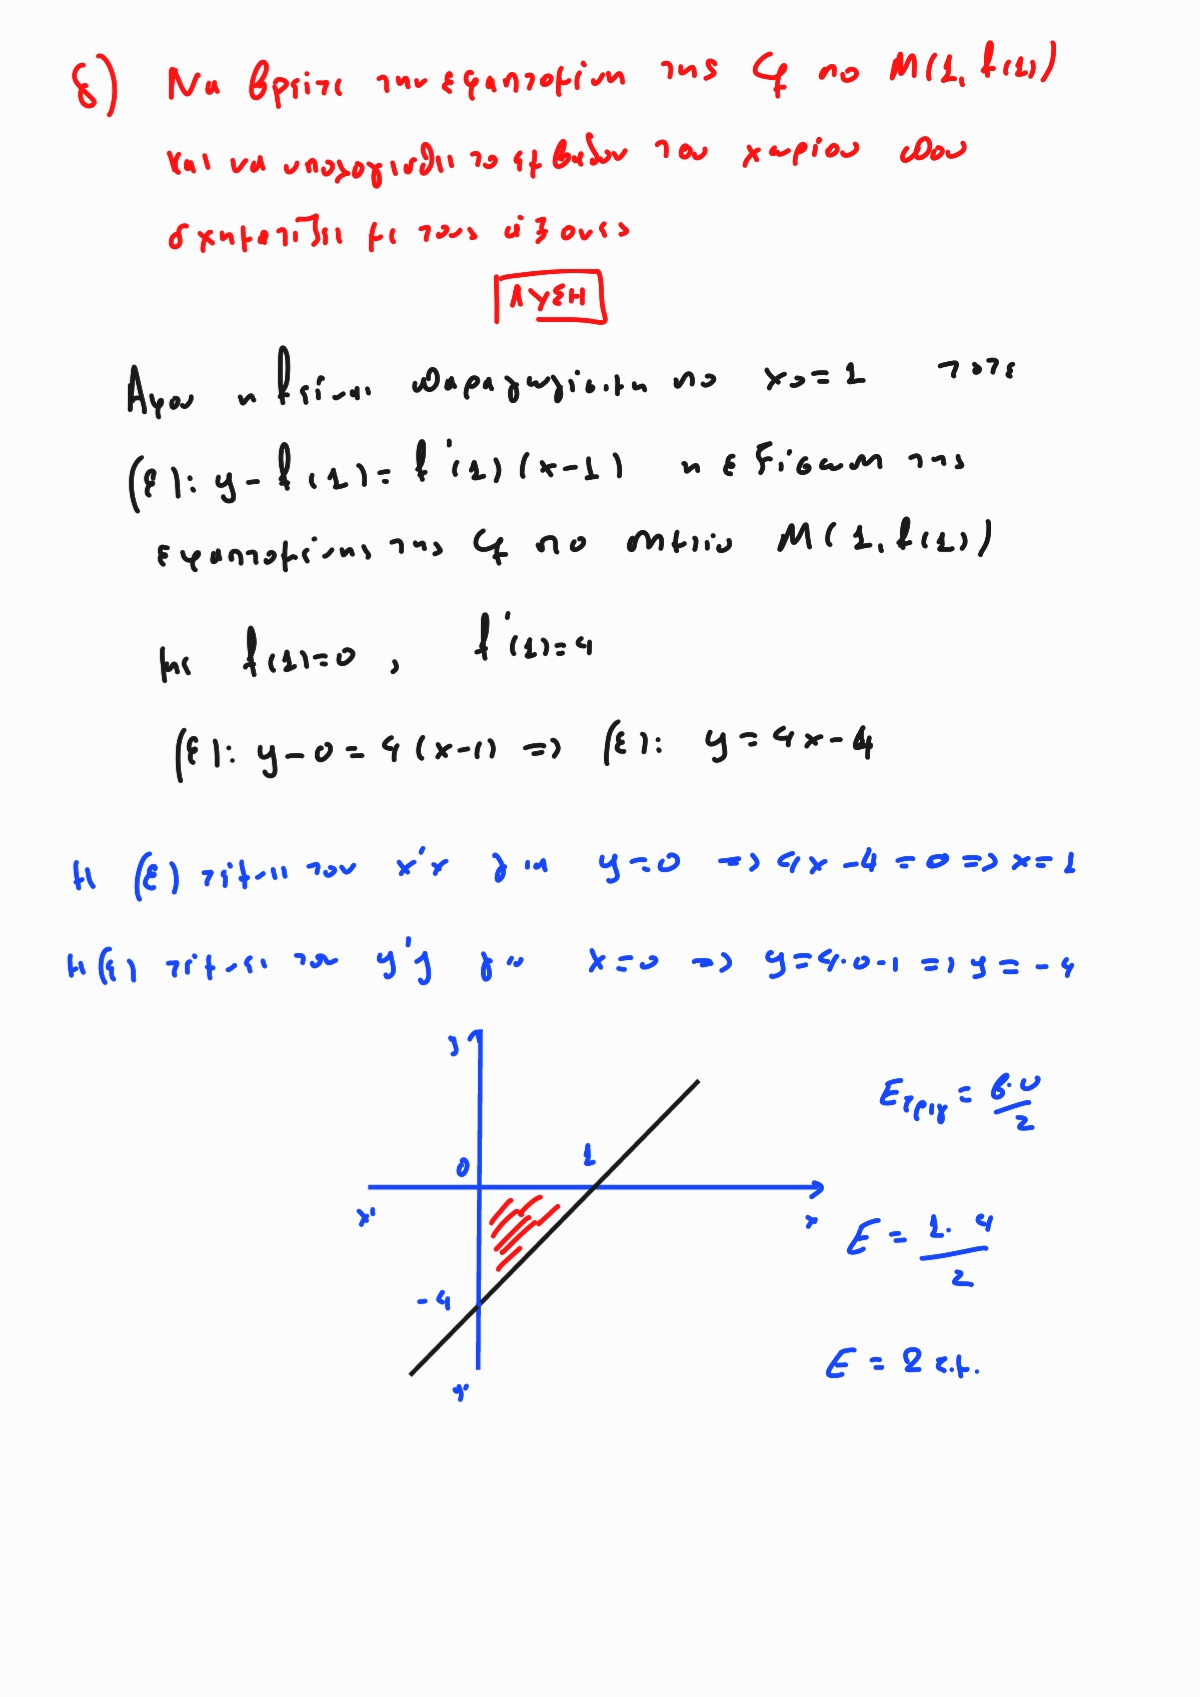 δ) Να βρείτε την εφαπτομένη της Cf στο M(1, f(1))
και να υπολογισθεί το εμβαδόν του χωρίου που
σχηματίζει με τους άξονες
ΛΥΣΗ
Αφου η f είναι παραγωγίσιμη στο x₀=1 τότε
(ε): y-f(1)=f'(1)(x-1) η εξίσωση της
εφαπτομένης της Cf στο σημείο M(1, f(1))
με f(1)=0 , f'(1)=4
(ε): y-0=4(x-1) => (ε): y=4x-4
Η (ε) τέμνει τον x'x για y=0 => 4x-4=0 => x=1
Η (ε) τέμνει τον y'y για x=0 => y=4·0-1 => y=-4
y
0 1
x' x
-4
y'
Eτριγ = β·υ/2
E = 1·4/2
E = 2 τ.μ.